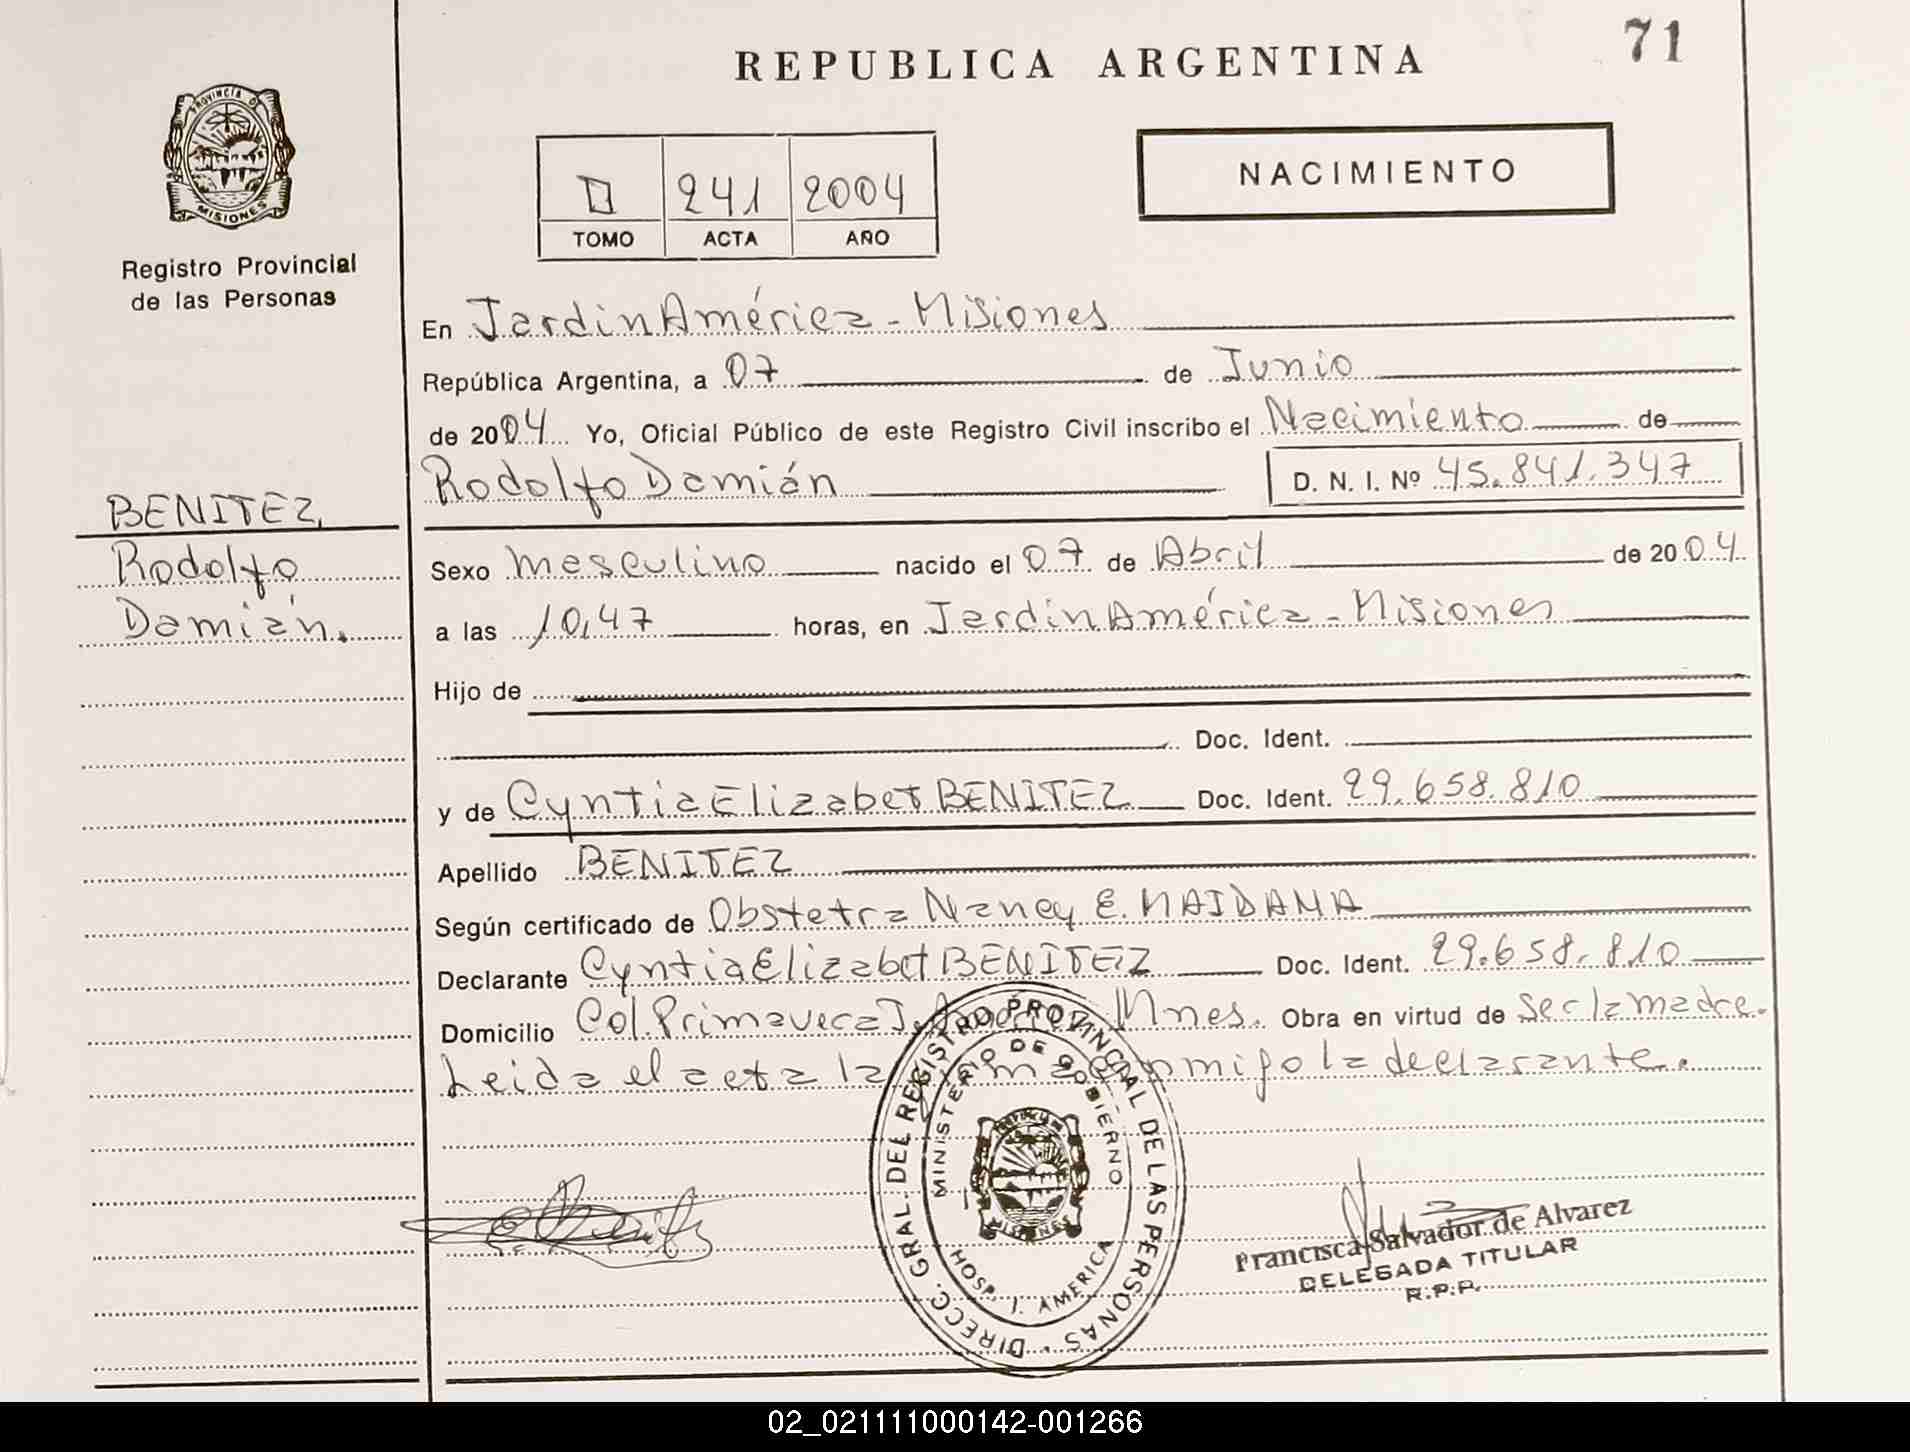 71
REPUBLICA ARGENTINA
PROVINCIA DE
MISIONES
Registro Provincial
de las Personas
241 2004
TOMO ACTA AÑO
NACIMIENTO
En Jardin América - Misiones
República Argentina, a 07 de Junio
de 2004 Yo, Oficial Público de este Registro Civil inscribo el Nacimiento de
Rodolfo Damián D. N. I. Nº 45.841.347
BENITEZ,
Rodolfo
Damián.
Sexo masculino nacido el 07 de Abril de 2004
a las 10,47 horas, en Jardin América - Misiones
Hijo de
Doc. Ident.
y de Cyntia Elizabet BENITEZ Doc. Ident. 29.658.810
Apellido BENITEZ
Según certificado de Obstetra Nancy E. MAIDANA
Declarante Cyntia Elizabet BENITEZ Doc. Ident. 29.658.810
Domicilio Col. Primavera J. América Mnes. Obra en virtud de Ser la madre.
Leida el acta la firma conmigo la declarante.
DIRECC. GRAL. DEL REGISTRO PROVINCIAL DE LAS PERSONAS
MINISTERIO DE GOBIERNO
MISIONES
HOSP. J. AMERICA
Francisca Salvador de Alvarez
DELEGADA TITULAR
R.P.P.
02_021111000142-001266